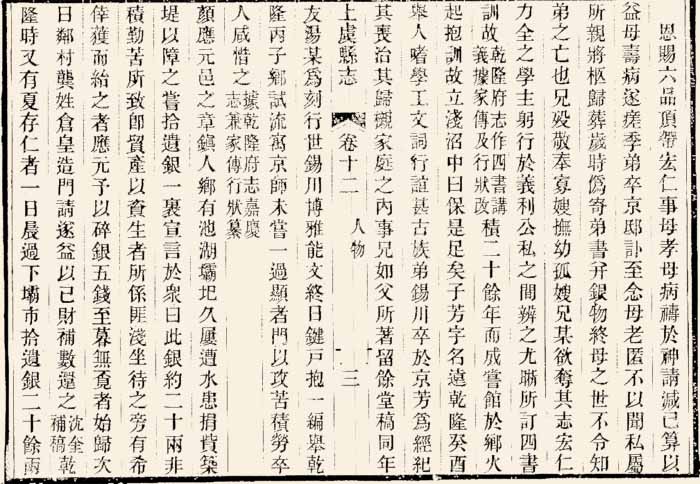 恩賜六品頂帶宏仁事母孝母病禱於神請減已算以
益母壽病遂瘥季弟卒京邸訃至念母老匿不以聞私屬
所親將柩歸葬歲時僞寄弟書幷銀物終母之世不令知
弟之亡也兄歿敬奉寡嫂撫幼孤嫂兄某欲奪其志宏仁
力全之學主躬行於義利公私之間辨之尤晰所訂四書
訓故乾隆府志作四書講義據家傳及行狀改積二十餘年而成嘗館於鄉火
起抱訓故立淺沼中曰保是足矣子芳字名遠乾隆癸酉
舉人嗜學工文詞行誼甚古族弟錫川卒於京芳爲經紀
其喪治其歸櫬家庭之內事兄如父所著留餘堂稿同年
上虞縣志 卷十二 人物 三
友湯某爲刻行世錫川博雅能文終日鍵戸抱一編舉乾
隆丙子鄉試流寓京師未嘗一過顯者門以攻苦積勞卒
人咸惜之據乾隆府志嘉慶志兼家傳行狀纂
顏應元邑之章鎭人鄉有池湖壩圯久屢遭水患捐貲築
堤以障之嘗拾遺銀一裹宣言於衆曰此銀約二十兩非
積勤苦所致卽貿產以資生者所係匪淺坐待之旁有希
倖獲而紿之者應元予以碎銀五錢至暮無覔者始歸次
日鄰村龔姓倉皇造門請遂益以己財補數還之沈奎乾補稿
隆時又有夏存仁者一日晨過下壩市拾遺銀二十餘兩